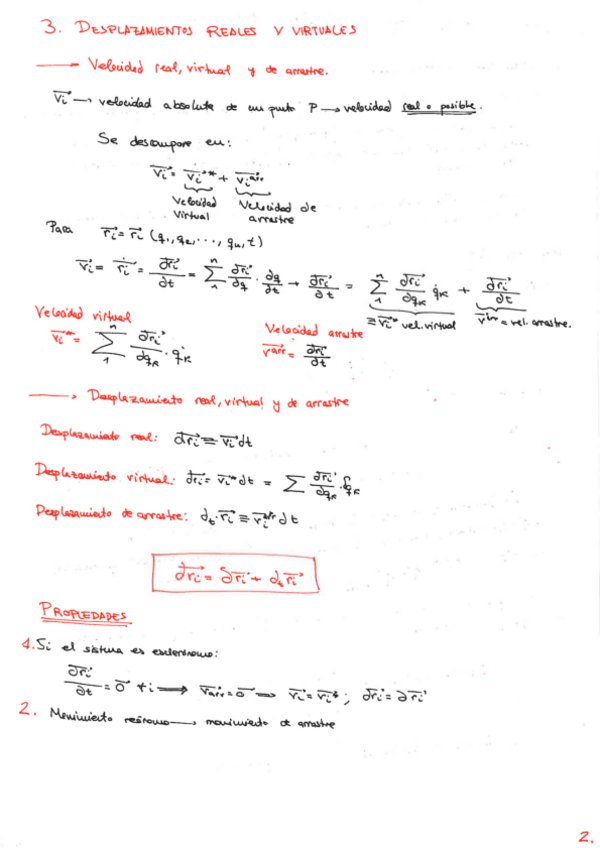 3. DESPLAZAMIENTOS REALES Y VIRTUALES
→ Velocidad real, virtual y de arrastre.
v⃗i → velocidad absoluta de un punto P → velocidad real o posible.
Se descompone en:
v⃗i = v⃗i* + v⃗i^arr
Velocidad virtual Velocidad de arrastre
Para r⃗i = r⃗i (q1, q2, ..., qn, t)
v⃗i = ṙ⃗i = dr⃗i/dt = Σ₁ⁿ ∂r⃗i/∂q · ∂q/∂t + ∂r⃗i/∂t = Σ₁ⁿ ∂r⃗i/∂qk q̇k + ∂r⃗i/∂t
≡ v⃗i* vel. virtual v⃗arr = vel. arrastre.
Velocidad virtual Velocidad arrastre
v⃗i* = Σ₁ⁿ ∂r⃗i/∂qk · q̇k v⃗arr = ∂r⃗i/∂t
→ Desplazamiento real, virtual y de arrastre
Desplazamiento real: dr⃗i ≡ v⃗i dt
Desplazamiento virtual: δr⃗i = v⃗i* dt = Σ ∂r⃗i/∂qk
Desplazamiento de arrastre: dt r⃗i ≡ v⃗i^arr dt
dr⃗i = δr⃗i + dt r⃗i
PROPIEDADES
1. Si el sistema es esclerónomo:
∂r⃗i/∂t = 0⃗ ∀i ⟹ v⃗arr = 0⃗ ⟹ v⃗i = v⃗i*; dr⃗i = ∂r⃗i
2. Movimiento reónomo → movimiento de arrastre
2.